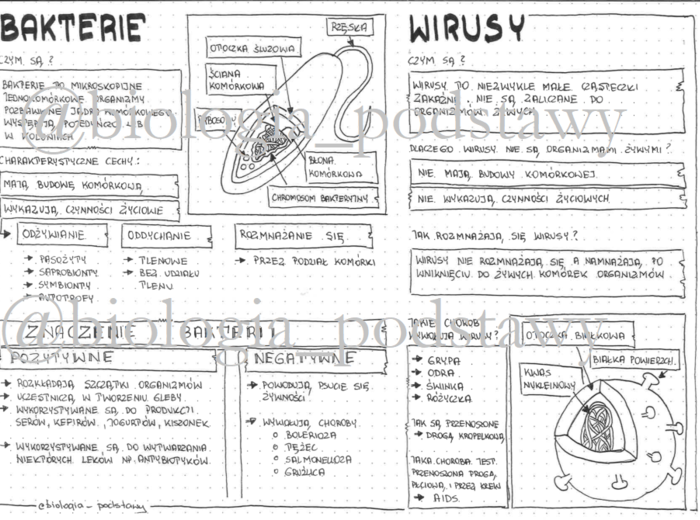 BAKTERIE
CZYM SĄ?
BAKTERIE TO MIKROSKOPIJNE
JEDNOKOMÓRKOWE ORGANIZMY
POZBAWIONE JĄDRA KOMÓRKOWEGO
WYSTĘPUJĄ POJEDYNCZO LUB
W KOLONIACH
CHARAKTERYSTYCZNE CECHY:
MAJĄ BUDOWĘ KOMÓRKOWĄ
WYKAZUJĄ CZYNNOŚCI ŻYCIOWE
RZĘSKA
OTOCZKA ŚLUZOWA
ŚCIANA
KOMÓRKOWA
RYBOSOMY
BŁONA
KOMÓRKOWA
CHROMOSOM BAKTERYJNY
ODŻYWIANIE
→ PASOŻYTY
→ SAPROBIONTY
→ SYMBIONTY
→ AUTOTROFY
ODDYCHANIE
→ TLENOWE
→ BEZ UDZIAŁU
TLENU
ROZMNAŻANIE SIĘ
→ PRZEZ PODZIAŁ KOMÓRKI
ZNACZENIE BAKTERII
POZYTYWNE
→ ROZKŁADAJĄ SZCZĄTKI ORGANIZMÓW
→ UCZESTNICZĄ W TWORZENIU GLEBY
→ WYKORZYSTYWANE SĄ DO PRODUKCJI
SERÓW, KEFIRÓW, JOGURTÓW, KISZONEK
→ WYKORZYSTYWANE SĄ DO WYTWARZANIA
NIEKTÓRYCH LEKÓW NP. ANTYBIOTYKÓW
NEGATYWNE
→ POWODUJĄ PSUCIE SIĘ
ŻYWNOŚCI
→ WYWOŁUJĄ CHOROBY
○ BORELIOZA
○ TĘŻEC
○ SALMONELLOZA
○ GRUŹLICA
@biologia_podstawy
WIRUSY
CZYM SĄ?
WIRUSY TO NIEZWYKLE MAŁE CZĄSTECZKI
ZAKAŹNE. NIE SĄ ZALICZANE DO
ORGANIZMÓW ŻYWYCH
DLACZEGO WIRUSY NIE SĄ ORGANIZMAMI ŻYWYMI?
NIE MAJĄ BUDOWY KOMÓRKOWEJ
NIE WYKAZUJĄ CZYNNOŚCI ŻYCIOWYCH
JAK ROZMNAŻAJĄ SIĘ WIRUSY?
WIRUSY NIE ROZMNAŻAJĄ SIĘ A NAMNAŻAJĄ PO
WNIKNIĘCIU DO ŻYWYCH KOMÓREK ORGANIZMÓW
JAKIE CHOROBY
WYWOŁUJĄ WIRUSY?
→ GRYPA
→ ODRA
→ ŚWINKA
→ RÓŻYCZKA
JAK SĄ PRZENOSZONE
→ DROGĄ KROPELKOWĄ
JAKA CHOROBA JEST
PRZENOSZONA DROGĄ
PŁCIOWĄ I PRZEZ KREW
→ AIDS
OTOCZKA BIAŁKOWA
BIAŁKA POWIERZCH.
KWAS
NUKLEINOWY
@biologia_podstawy
@biologia_podstawy